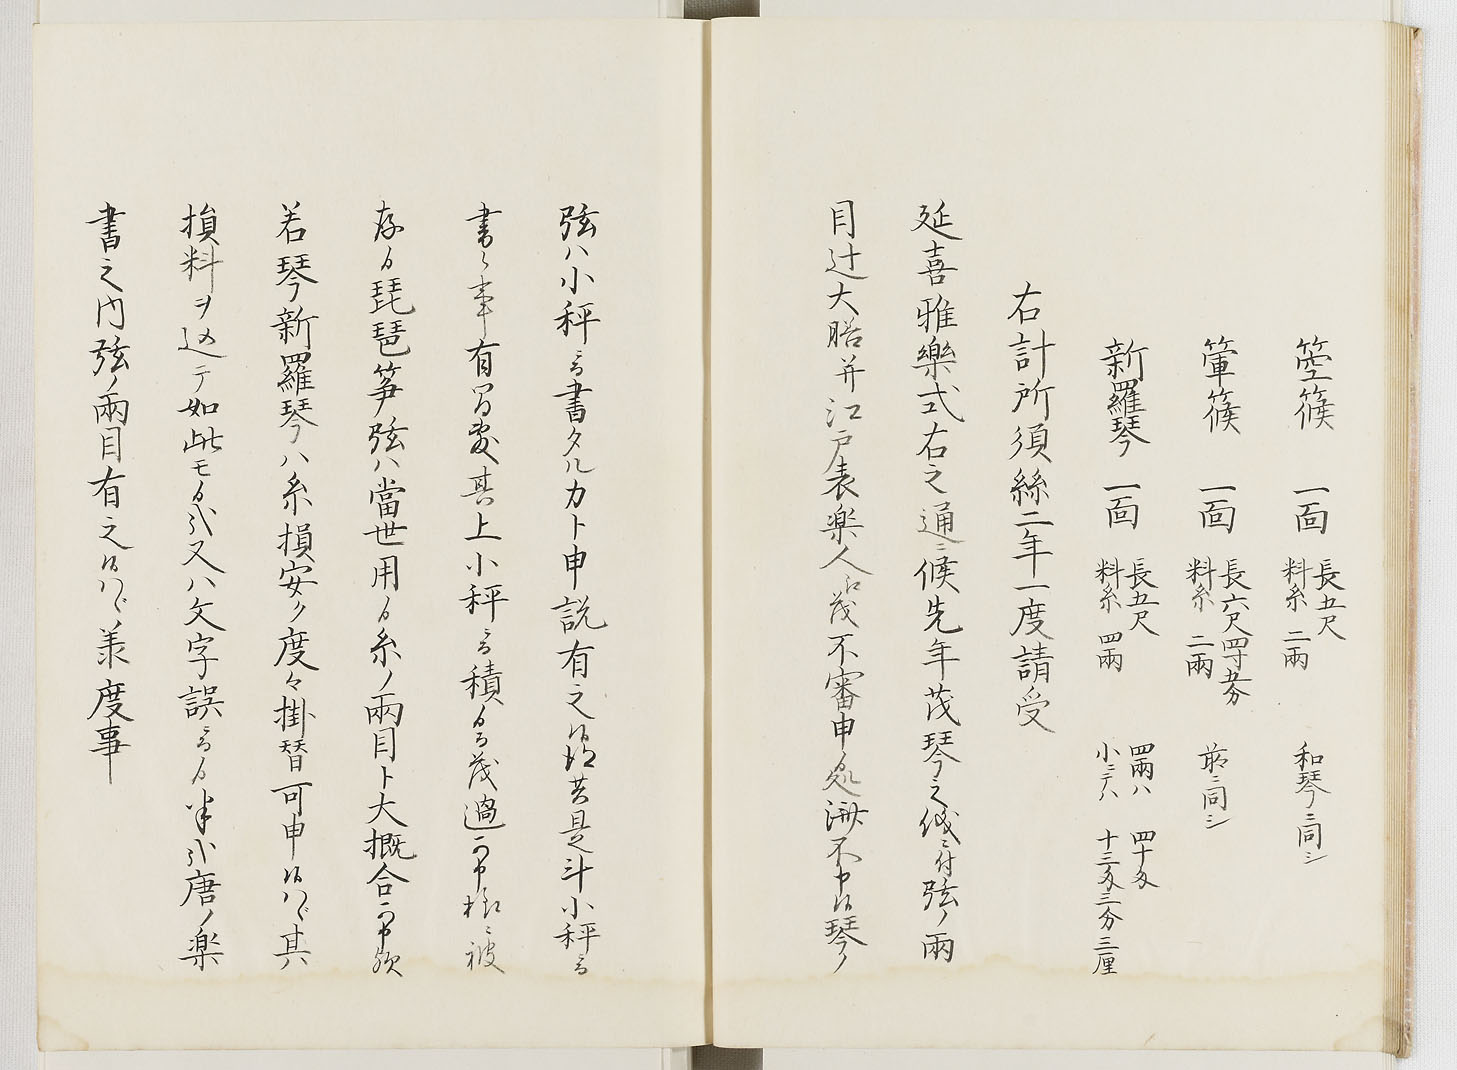 箜篌 一面 長五尺 料糸 二兩 和琴ニ同シ
篳篌 一面 長六尺四寸五分 料糸 二兩 前ニ同シ
新羅琴 一面 長五尺 料糸 四兩 四兩ハ 四十匁 小ニテハ 十三匁三分三厘
右計所須絲二年一度請受
延喜雅樂式右之通ニ候先年茂琴之儀ニ付弦ノ兩
目辻大膳并江戸表楽人江茂不審申處済不申候琴ノ
弦ハ小秤ニ而書タルカト申説有之候得共是斗小秤ニ而
書候事有間敷其上小秤ニ而積候而茂過可申様ニ被
存候琵琶箏弦ハ當世用候糸ノ兩目ト大概合可申歟
若琴新羅琴ハ糸損安ク度々掛替可申候ハヾ其ハ
損料ヲ込テ如此モ候哉又ハ文字誤ニ而候半哉唐ノ楽
書之内弦ノ兩目有之候ハヾ承度事